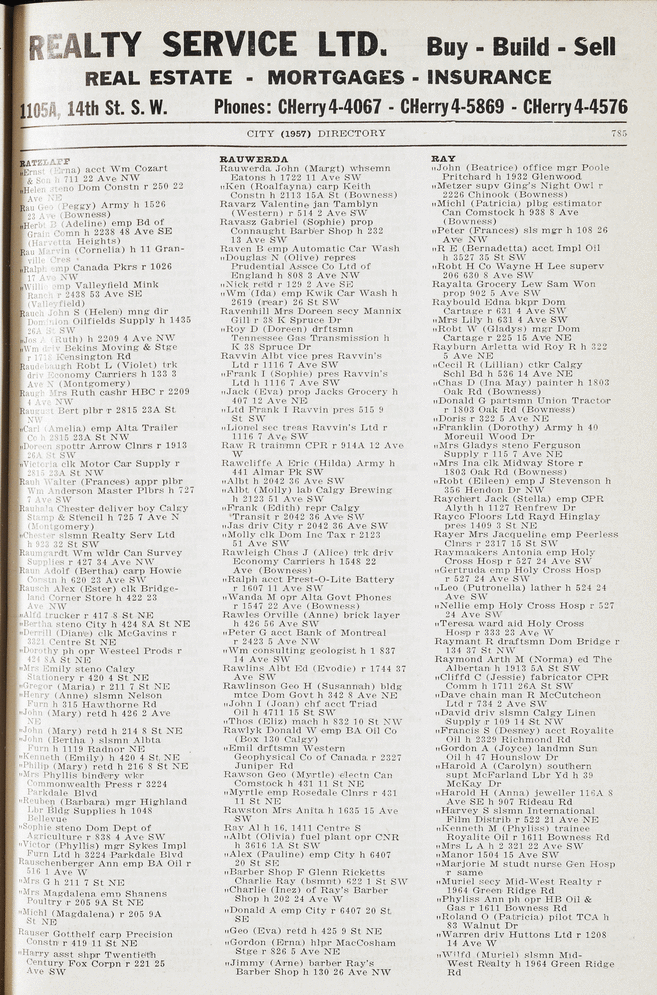 REALTY SERVICE LTD. Buy - Build - Sell
REAL ESTATE - MORTGAGES - INSURANCE
1105A, 14th St. S. W. Phones: CHerry 4-4067 - CHerry 4-5869 - CHerry 4-4576
CITY (1957) DIRECTORY 785
RATZLAFF
"Ernst (Erna) acct Wm Cozart
& Son h 711 22 Ave NW
"Helen steno Dom Constn r 250 22
Ave NE
Rau Geo (Peggy) Army h 1526
23 Ave (Bowness)
"Herbt B (Adeline) emp Bd of
Grain Comn h 2238 48 Ave SE
(Harvetta Heights)
Rau Marvin (Cornelia) h 11 Gran-
ville Cres
"Ralph emp Canada Pkrs r 1026
17 Ave NW
"Willie emp Valleyfield Mink
Ranch r 2438 53 Ave SE
(Valleyfield)
Rauch John S (Helen) mng dir
Dominion Oilfields Supply h 1435
26A St SW
"Jos A (Ruth) h 2209 4 Ave NW
"Wm driv Bekins Moving & Stge
r 1718 Kensington Rd
Raudebaugh Robt L (Violet) trk
driv Economy Carriers h 133 3
Ave N (Montgomery)
Raugh Mrs Ruth cashr HBC r 2209
4 Ave NW
Raugust Bert plbr r 2815 23A St
NW
"Carl (Amelia) emp Alta Trailer
Co h 2815 23A St NW
"Doreen spottr Arrow Clnrs r 1913
26A St SW
"Victoria clk Motor Car Supply r
2815 23A St NW
Rauh Walter (Frances) appr plbr
Wm Anderson Master Plbrs h 727
7 Ave SW
Rauhala Chester deliver boy Calgy
Stamp & Stencil h 725 7 Ave N
(Montgomery)
"Chester slsmn Realty Serv Ltd
h 923 32 St SW
Raumgardt Wm wldr Can Survey
Supplies r 427 34 Ave NW
Raun Adolf (Bertha) carp Howie
Constn h 620 23 Ave SW
Rausch Alex (Ester) clk Bridge-
land Corner Store h 422 23
Ave NW
"Alfd trucker r 417 8 St NE
"Bertha steno City h 424 8A St NE
"Derrill (Diane) clk McGavins r
3321 Centre St NE
"Dorothy ph opr Westeel Prods r
424 8A St NE
"Mrs Emily steno Calgy
Stationery r 420 4 St NE
"Gregor (Maria) r 211 7 St NE
"Henry (Anne) slsmn Nelson
Furn h 315 Hawthorne Rd
"John (Mary) retd h 426 2 Ave
NE
"John (Mary) retd h 214 8 St NE
"John (Bertha ) slsmn Albta
Furn h 1119 Radnor NE
"Kenneth (Emily) h 420 4 St NE
"Philip (Mary) retd h 216 8 St NE
"Mrs Phyllis bindery wkr
Commonwealth Press r 3224
Parkdale Blvd
"Reuben (Barbara) mgr Highland
Lbr Bldg Supplies h 1048
Bellevue
"Sophie steno Dom Dept of
Agriculture r 838 4 Ave SW
"Victor (Phyllis) mgr Sykes Impl
Furn Ltd h 3224 Parkdale Blvd
Rauschenberger Ann emp BA Oil r
516 1 Ave W
"Mrs G h 211 7 St NE
"Mrs Magdalena emp Shanens
Poultry r 205 9A St NE
"Michl (Magdalena) r 205 9A
St NE
Rauser Gotthelf carp Precision
Constn r 419 11 St NE
"Harry asst shpr Twentieth
Century Fox Corpn r 221 25
Ave SW
RAUWERDA
Rauwerda John (Margt) whsemn
Eatons h 1722 11 Ave SW
"Ken (Roalfayna) carp Keith
Constn h 2113 15A St (Bowness)
Ravarz Valentine jan Tamblyn
(Western) r 514 2 Ave SW
Ravasz Gabriel (Sophie) prop
Connaught Barber Shop h 232
13 Ave SW
Raven B emp Automatic Car Wash
"Douglas N (Olive) repres
Prudential Assce Co Ltd of
England h 808 3 Ave NW
"Nick retd r 129 2 Ave SE
"Wm (Ida) emp Kwik Car Wash h
2619 (rear) 26 St SW
Ravenhill Mrs Doreen secy Mannix
Gill r 38 K Spruce Dr
"Roy D (Doreen) drftsmn
Tennessee Gas Transmission h
K 38 Spruce Dr
Ravvin Albt vice pres Ravvin's
Ltd r 1116 7 Ave SW
"Frank I (Sophie) pres Ravvin's
Ltd h 1116 7 Ave SW
"Jack (Eva) prop Jacks Grocery h
407 12 Ave NE
"Ltd Frank I Ravvin pres 515 9
St SW
"Lionel sec treas Ravvin's Ltd r
1116 7 Ave SW
Raw R trainmn CPR r 914A 12 Ave
W
Rawcliffe A Eric (Hilda) Army h
441 Almar Pk SW
"Albt h 2042 36 Ave SW
"Albt (Molly) lab Calgy Brewing
h 2123 51 Ave SW
"Frank (Edith) repr Calgy
Transit r 2042 36 Ave SW
"Jas driv City r 2042 36 Ave SW
"Molly clk Dom Inc Tax r 2123
51 Ave SW
Rawleigh Chas J (Alice) trk driv
Economy Carriers h 1548 22
Ave (Bowness)
"Ralph acct Prest-O-Lite Battery
r 1607 11 Ave SW
"Wanda M opr Alta Govt Phones
r 1547 22 Ave (Bowness)
Rawles Orville (Anne) brick layer
h 426 56 Ave SW
"Peter G acct Bank of Montreal
r 2423 5 Ave NW
"Wm consulting geologist h 1 837
14 Ave SW
Rawlins Albt Ed (Evodie) r 1744 37
Ave SW
Rawlinson Geo H (Susannah) bldg
mtce Dom Govt h 342 8 Ave NE
"John I (Joan) chf acct Triad
Oil h 4711 15 St SW
"Thos (Eliz) mach h 832 10 St NW
Rawlyk Donald W emp BA Oil Co
(Box 130 Calgy)
"Emil drftsmn Western
Geophysical Co of Canada r 2327
Juniper Rd
Rawson Geo (Myrtle) electn Can
Comstock h 431 11 St NE
"Myrtle emp Rosedale Clnrs r 431
11 St NE
Rawston Mrs Anita h 1635 15 Ave
SW
Ray Al h 16, 1411 Centre S
"Albt (Olivia) fuel plant opr CNR
h 3616 1A St SW
"Alex (Pauline) emp City h 6407
20 St SE
"Barber Shop F Glenn Ricketts
Charlie Ray (bsmnt) 622 1 St SW
"Charlie (Inez) of Ray's Barber
Shop h 202 24 Ave W
"Donald A emp City r 6407 20 St
SE
"Geo (Eva) retd h 425 9 St NE
"Gordon (Erna) hlpr MacCosham
Stge r 826 5 Ave NE
"Jimmy (Arne) barber Ray's
Barber Shop h 130 26 Ave NW
RAY
"John (Beatrice) office mgr Poole
Pritchard h 1932 Glenwood
"Metzer supv Ging's Night Owl r
2226 Chinook (Bowness)
"Michl (Patricia) plbg estimator
Can Comstock h 938 8 Ave
(Bowness)
"Peter (Frances) sls mgr h 108 26
Ave NW
"R E (Bernadetta) acct Impl Oil
h 3527 35 St SW
"Robt H Co Wayne H Lee superv
206 630 8 Ave SW
Rayalta Grocery Lew Sam Won
prop 902 5 Ave SW
Raybould Edna bkpr Dom
Cartage r 631 4 Ave SW
"Mrs Lily h 631 4 Ave SW
"Robt W (Gladys) mgr Dom
Cartage r 225 15 Ave NE
Rayburn Arletta wid Roy R h 322
5 Ave NE
"Cecil R (Lillian) ctkr Calgy
Schl Bd h 536 14 Ave NE
"Chas D (Ina May) painter h 1803
Oak Rd (Bowness)
"Donald G partsmn Union Tractor
r 1803 Oak Rd (Bowness)
"Doris r 322 5 Ave NE
"Franklin (Dorothy) Army h 40
Moreuil Wood Dr
"Mrs Gladys steno Ferguson
Supply r 115 7 Ave NE
"Mrs Ina clk Midway Store r
1803 Oak Rd (Bowness)
"Robt (Eileen) emp J Stevenson h
356 Hendon Dr NW
Raychert Jack (Stella) emp CPR
Alyth h 1127 Renfrew Dr
Rayco Floors Ltd Rayd Hinglay
pres 1409 3 St NE
Rayer Mrs Jacqueline emp Peerless
Clnrs r 2317 15 St SW
Raymaakers Antonia emp Holy
Cross Hosp r 527 24 Ave SW
"Gertruda emp Holy Cross Hosp
r 527 24 Ave SW
"Leo (Putronella) lather h 524 24
Ave SW
"Nellie emp Holy Cross Hosp r 527
24 Ave SW
"Teresa ward aid Holy Cross
Hosp r 333 23 Ave W
Raymant R draftsmn Dom Bridge r
134 37 St NW
Raymond Arth M (Norma) ed The
Albertan h 1913 5A St SW
"Cliffd C (Jessie) fabricator CPR
Comm h 1711 26A St SW
"Dave chain man R McCutcheon
Ltd r 734 2 Ave SW
"David driv slsmn Calgy Linen
Supply r 109 14 St NW
"Francis S (Desney) acct Royalite
Oil h 2329 Richmond Rd
"Gordon A (Joyce) landmn Sun
Oil h 47 Hounslow Dr
"Harold A (Carolyn) southern
supt McFarland Lbr Yd h 39
McKay Dr
"Harold H (Anna) jeweller 116A 8
Ave SE h 907 Rideau Rd
"Harvey S slsmn International
Film Distrib r 522 21 Ave NE
"Kenneth M (Phyllis) trainee
Royalite Oil r 1611 Bowness Rd
"Mrs L A h 2 321 22 Ave SW
"Manor 1504 15 Ave SW
"Marjorie M studt nurse Gen Hosp
r same
"Muriel secy Mid-West Realty r
1964 Green Ridge Rd
"Phyliss Ann ph opr HB Oil &
Gas r 1611 Bowness Rd
"Roland O (Patricia) pilot TCA h
83 Walnut Dr
"Warren driv Huttons Ltd r 1208
14 Ave W
"Wilfd (Muriel) slsmn Mid-
West Realty h 1964 Green Ridge
Rd